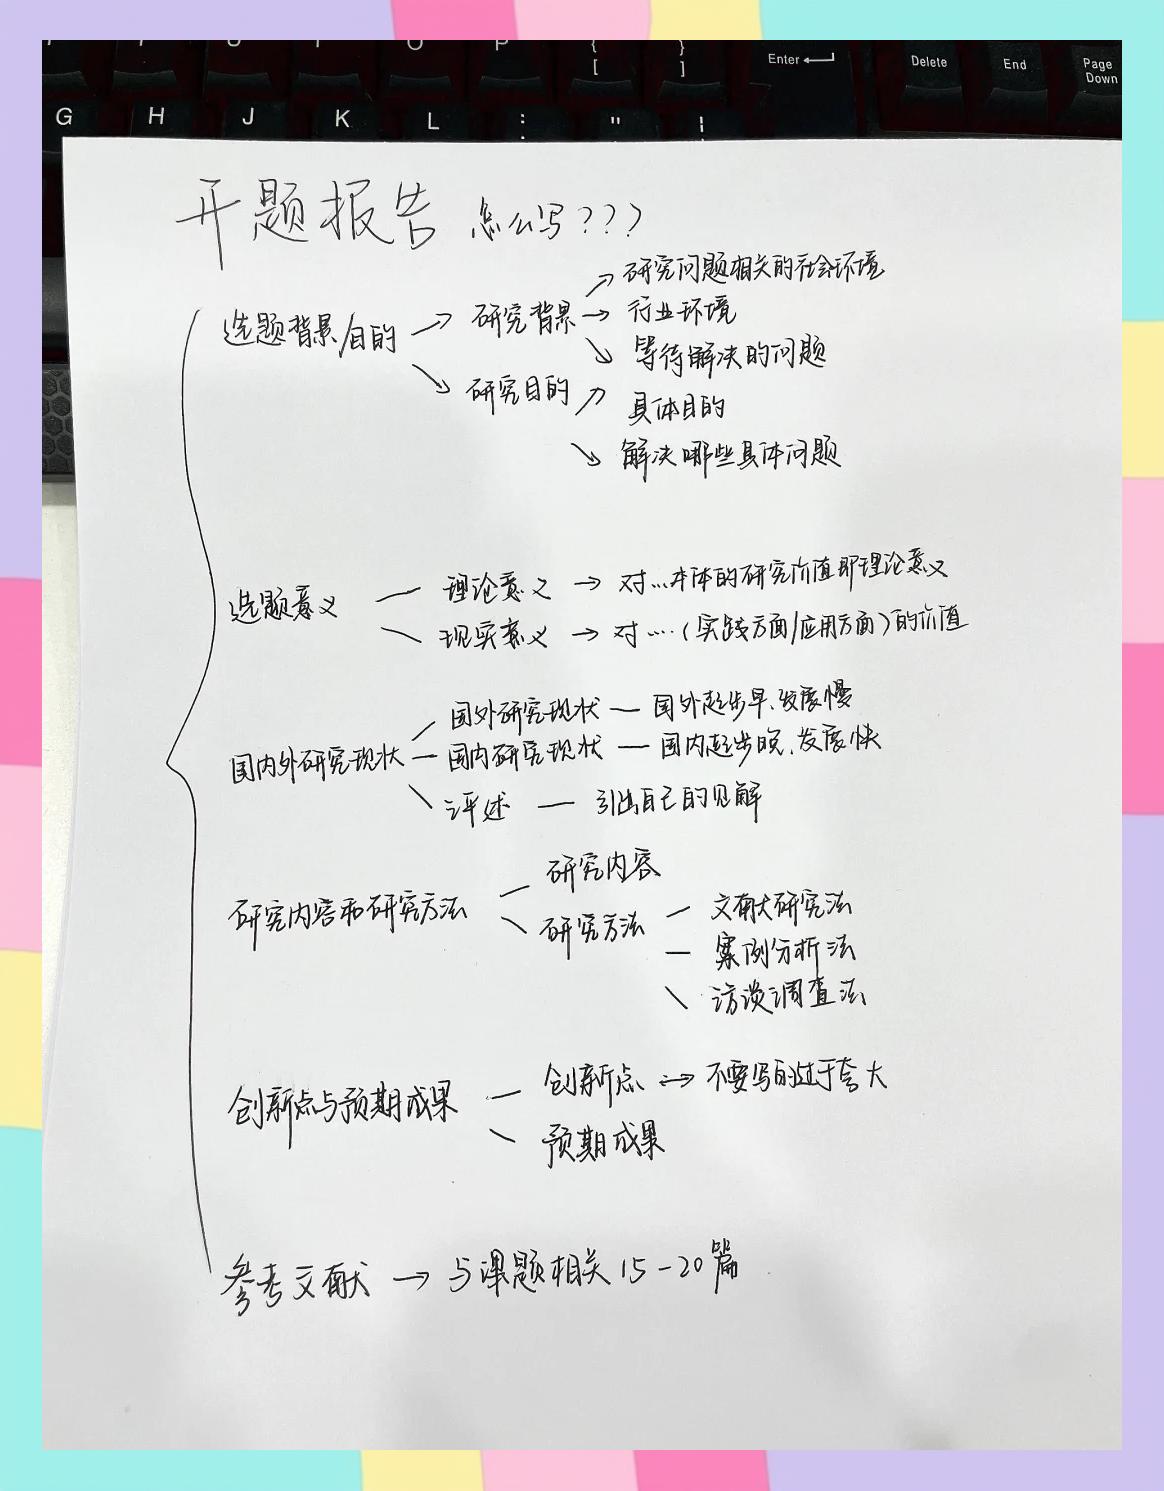 G H J K L : "
{ [ } ] Enter Delete End Page Down
开题报告 怎么写???
选题背景/目的 → 研究背景 → 研究问题相关的社会环境
→ 行业环境
↘ 等待解决的问题
↘ 研究目的 ↗ 具体目的
↘ 解决哪些具体问题
选题意义 — 理论意义 → 对…本体的研究价值即理论意义
现实意义 → 对…(实践方面/应用方面)的价值
国内外研究现状 — 国外研究现状 — 国外起步早、发展慢
国内研究现状 — 国内起步晚、发展快
评述 — 引出自己的见解
研究内容和研究方法 — 研究内容
研究方法 — 文献研究法
— 案例分析法
访谈调查法
创新点与预期成果 — 创新点 → 不要写的过于夸大
预期成果
参考文献 → 与课题相关15-20篇